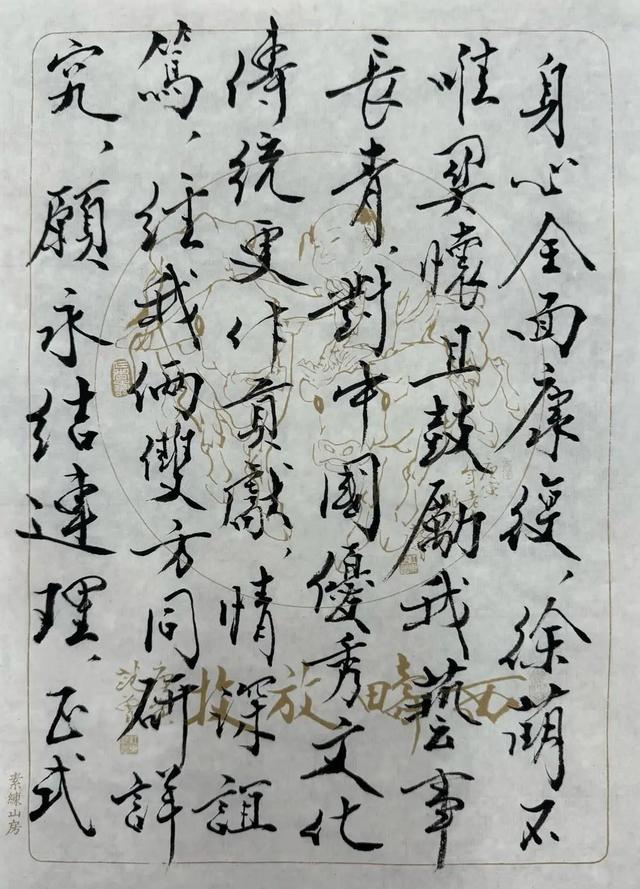 身心全面康復、徐萌不
唯關懷且鼓勵我藝事
長青、對中國優秀文化
傳統更作貢獻、情深誼
篤、經我倆雙方同研詳
究、願永結連理、正式
西疇放牧
素練山房